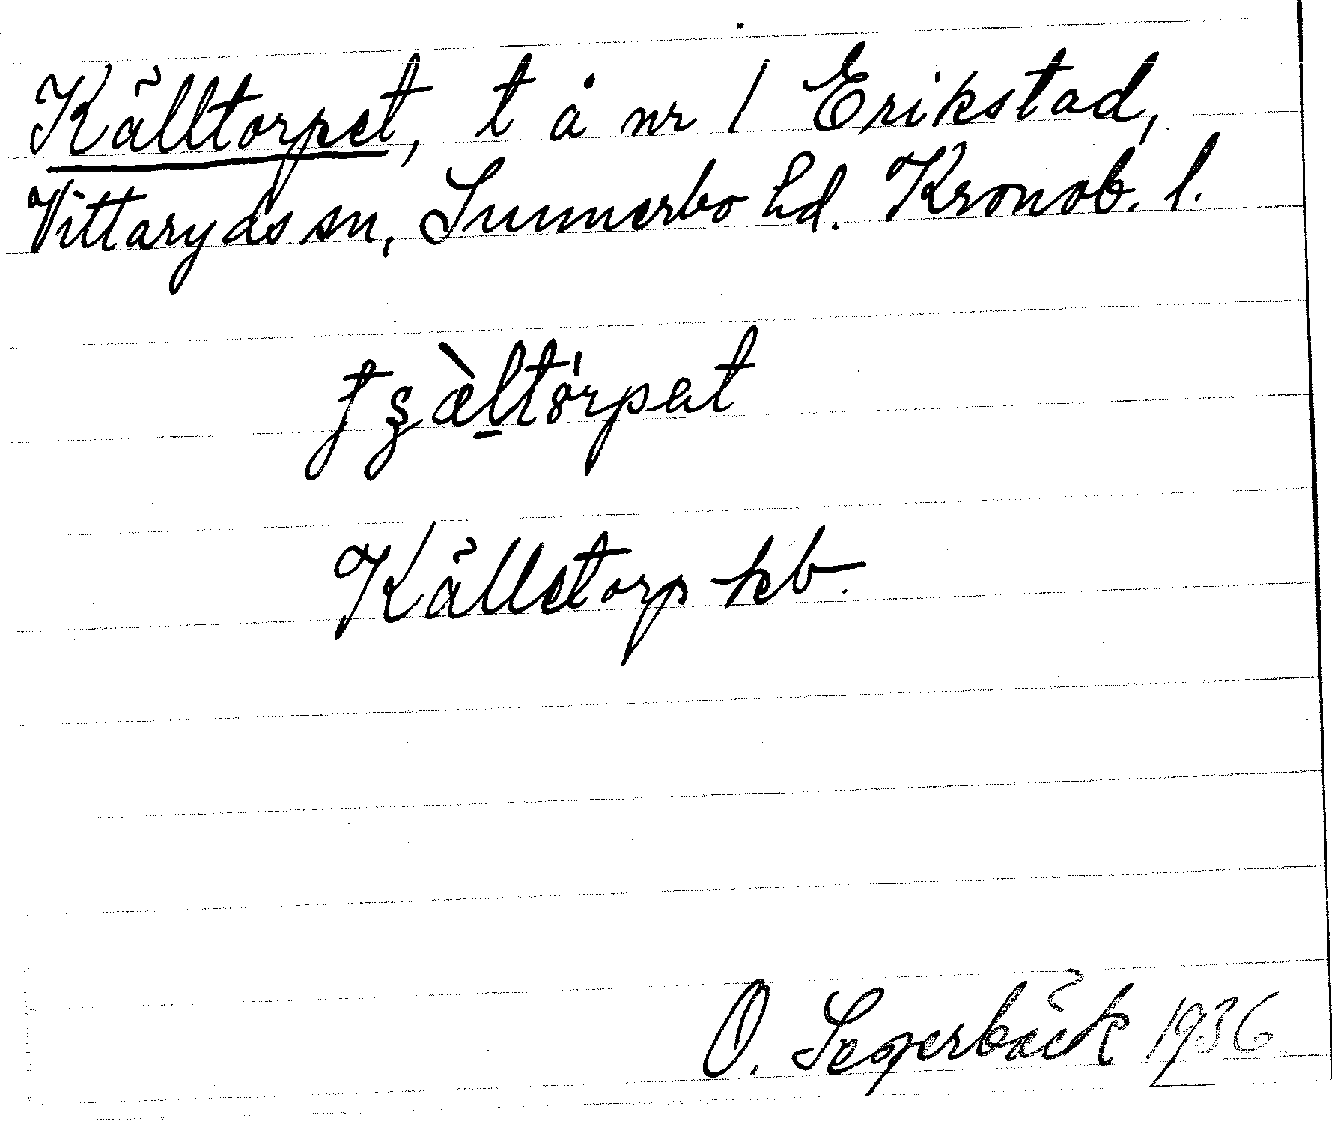 Källtorpet, t å nr 1 Erikstad,
Vittaryds sn, Sunnerbo hd. Kronob. l.
ƫʂæ̀ltó̤rpət
Källetorp kb.
O. Segerbäck 1936